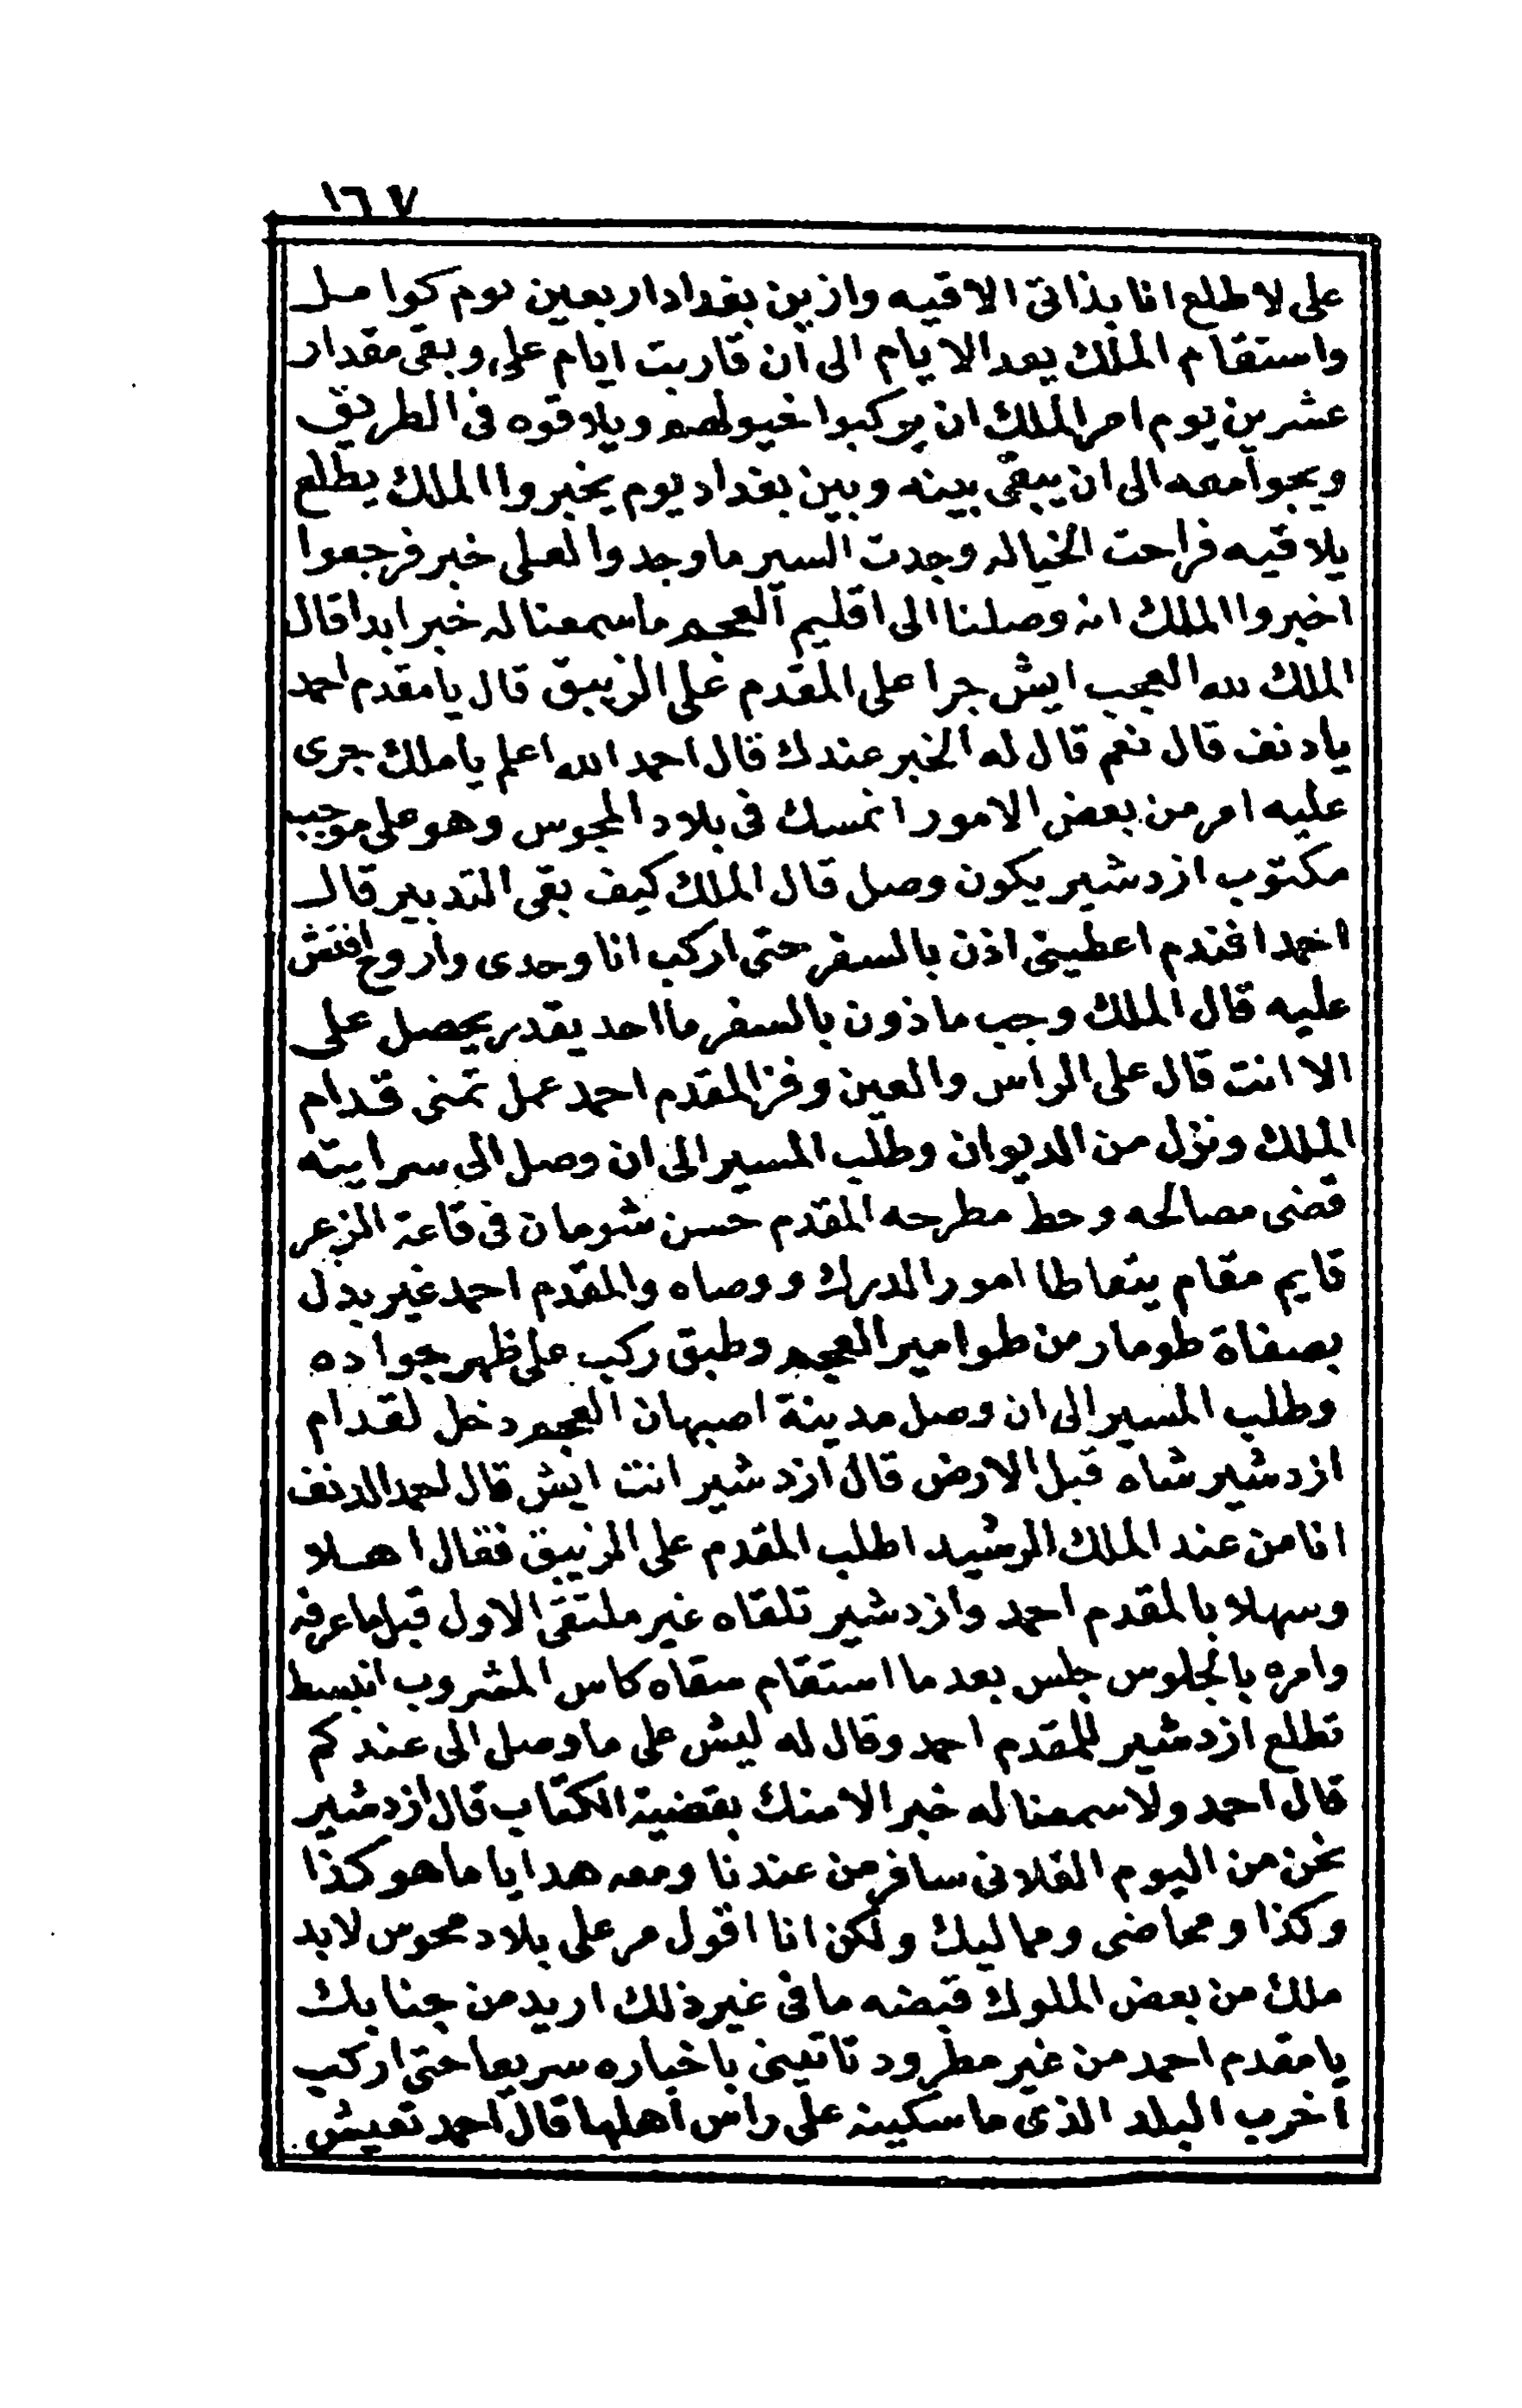 ١٦٧
على لاطلع انا بذاتى الاقيه وازين بغداد اربعين يوم كوامل
واستقام الملك يعد الايام الى ان قاربت ايام على وبقى مقدار
عشرين يوم امر الملك ان يركبوا خيولهم ويلاقوه فى الطريق
ويجوا معه الى ان يبقى بينه وبين بغداد يوم يخبروا الملك يطلع
يلاقيه فراحت الخياله وجدت السير ما وجدوا لعلى خبر فرجعوا
اخبروا الملك انه وصلنا الى اقليم العجم ما سمعنا له خبر ابدا قال
الملك لله العجب ايش جرا على المقدم على الزيبق قال يا مقدم احمد
يا دنف قال نعم قال له الخبر عندك قال احمد الله اعلم يا ملك جرى
عليه امر من بعض الامور انمسك فى بلاد المجوس وهو على موجب
مكتوب ازدشير يكون وصل قال الملك كيف بقى التدبير قال
احمد افندم اعطينى اذن بالسفر حتى اركب انا وحدى واروح افتش
عليه قال الملك وجب ماذون بالسفر ما احد يقدر يحصل على
الا انت قال على الراس والعين وفز المقدم احمد عمل تمنى قدام
الملك ونزل من الديوان وطلب المسير الى ان وصل الى سرايته
قضى مصالحه وحط مطرحه المقدم حسن شومان فى قاعة الزعر
قايم مقام يتعاطا امور الدرك ووصاه والمقدم احمد غير بدل
بصفاة طومار من طوامير العجم وطبق ركب على ظهر جواده
وطلب المسير الى ان وصل مدينة اصبهان العجم دخل لقدام
ازدشير شاه قبل الارض قال ازدشير انت ايش قال احمد الدنف
انا من عند الملك الرشيد اطلب المقدم على الزيبق فقال اهلا
وسهلا بالمقدم احمد وازدشير تلقاه غير ملتقى الاول قبل ما عرفه
وامره بالجلوس جلس بعد ما استقام سقاه كاس المشروب انبسط
تطلع ازدشير للمقدم احمد وقال له ليش على ما وصل الى عندكم
قال احمد ولا سمعنا له خبر الا منك بقضية الكتاب قال ازدشير
نحن من اليوم الفلانى سافر من عندنا ومعه هدايا ما هو كذا
وكذا ومحاضى ومماليك ولكن انا اقول مر على بلاد مجوس لابد
ملك من بعض الملوك قبضه ما فى غير ذلك اريد من جنابك
يا مقدم احمد من غير مطرود تاتينى باخباره سريعا حتى اركب
اخرب البلد الذى ماسكينه على راس اهلها قال احمد تعيش